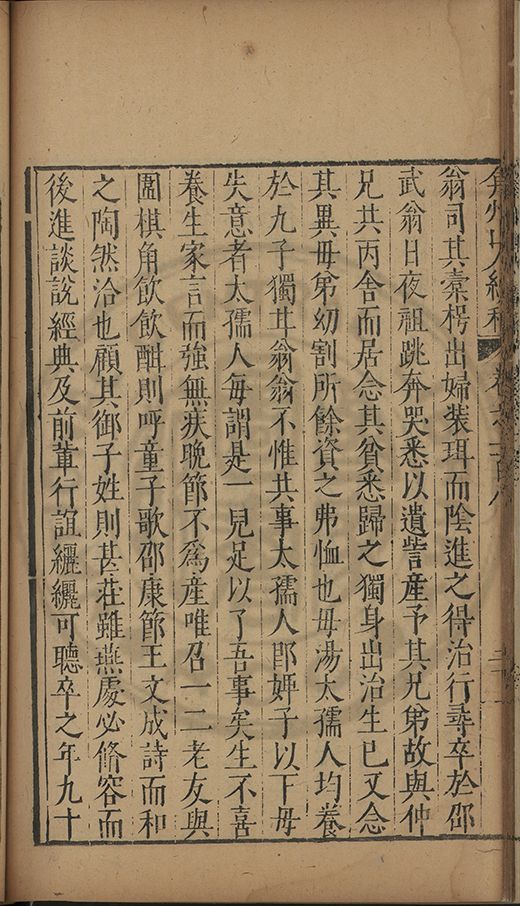 弇州山人續稿 卷之一百八
翁司其橐楞出婦裝珥而陰進之得治行尋卒於邵
武翁日夜祖跣奔哭悉以遺訾産予其兄弟故與仲
兄共丙舍而居念其貧悉歸之獨身出治生已又念
其異毋弟幼割所餘資之弗恤也毋湯太孺人均養
於九子獨耳翁翁不惟其事太孺人卽婢子以下毋
失意者太孺人每謂是一兒足以了吾事矣生不喜
養生家言而強無疾晚節不爲產唯召一二老友與
圍棋角飲飲酣則呼童子歌邵康節王文成詩而和
之陶然洽也顧其御子姓則甚莊雖燕處必脩容而
後進談說經典及前輩行誼纚纚可聽卒之年九十